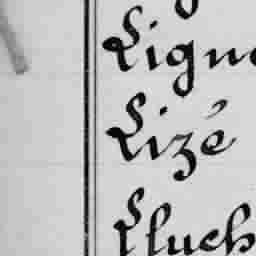 Ligne
Lizé
Lluch